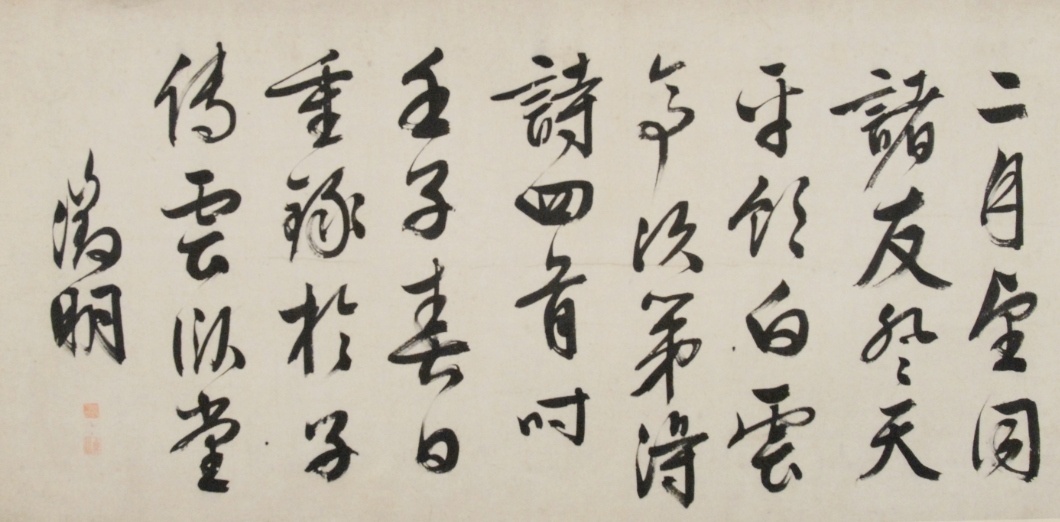 二月望同
諸友登天
平飲白雲
亭次第得
詩四首時
壬子春日
重錄於子
傳雲臥堂
徵明